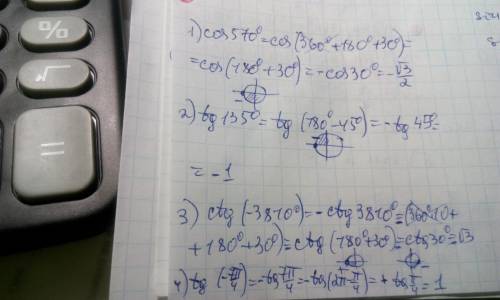 %
√
=
1) cos570°=cos(360°+180°+30°)=
=cos(180°+30°)=-cos30°=-√3/2
2) tg135°=tg(180°-45°)=-tg45°=
=-1
3) ctg(-3810°)=-ctg3810°=(360°·10+
+180°+30°)=ctg(180°+30°)=ctg30°=√3
4) tg(-7π/4)=-tg7π/4=-tg(2π-π/4)=+tgπ/4=1